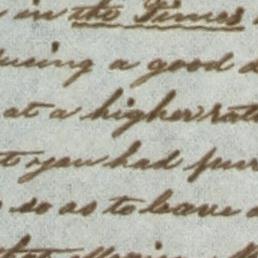 in the Times
using a good
at a higher rat
t you had pur
so as to leave a